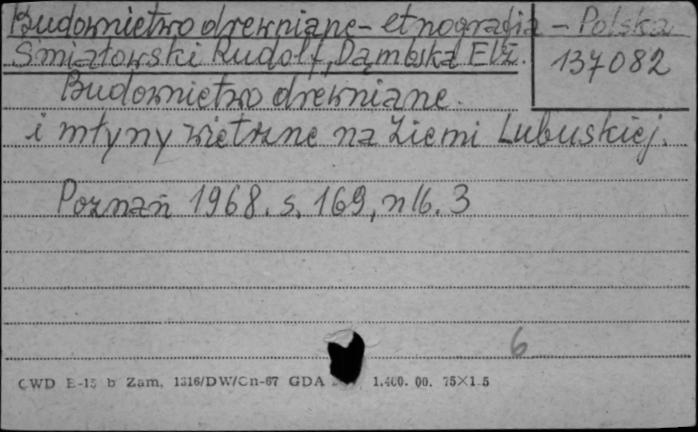 Budownictwo drewniane - etnografia - Polska
Śmiałowski Rudolf, Dąmbska Elż.
137082
Budownictwo drewniane
i młyny wietrzne na Ziemi Lubuskiej.
Poznań 1968. s. 169, nlb. 3
6
CWD E-15 b Zam. 1316/DW/Cn-67 GDA 1.400. 00. 75×1 5